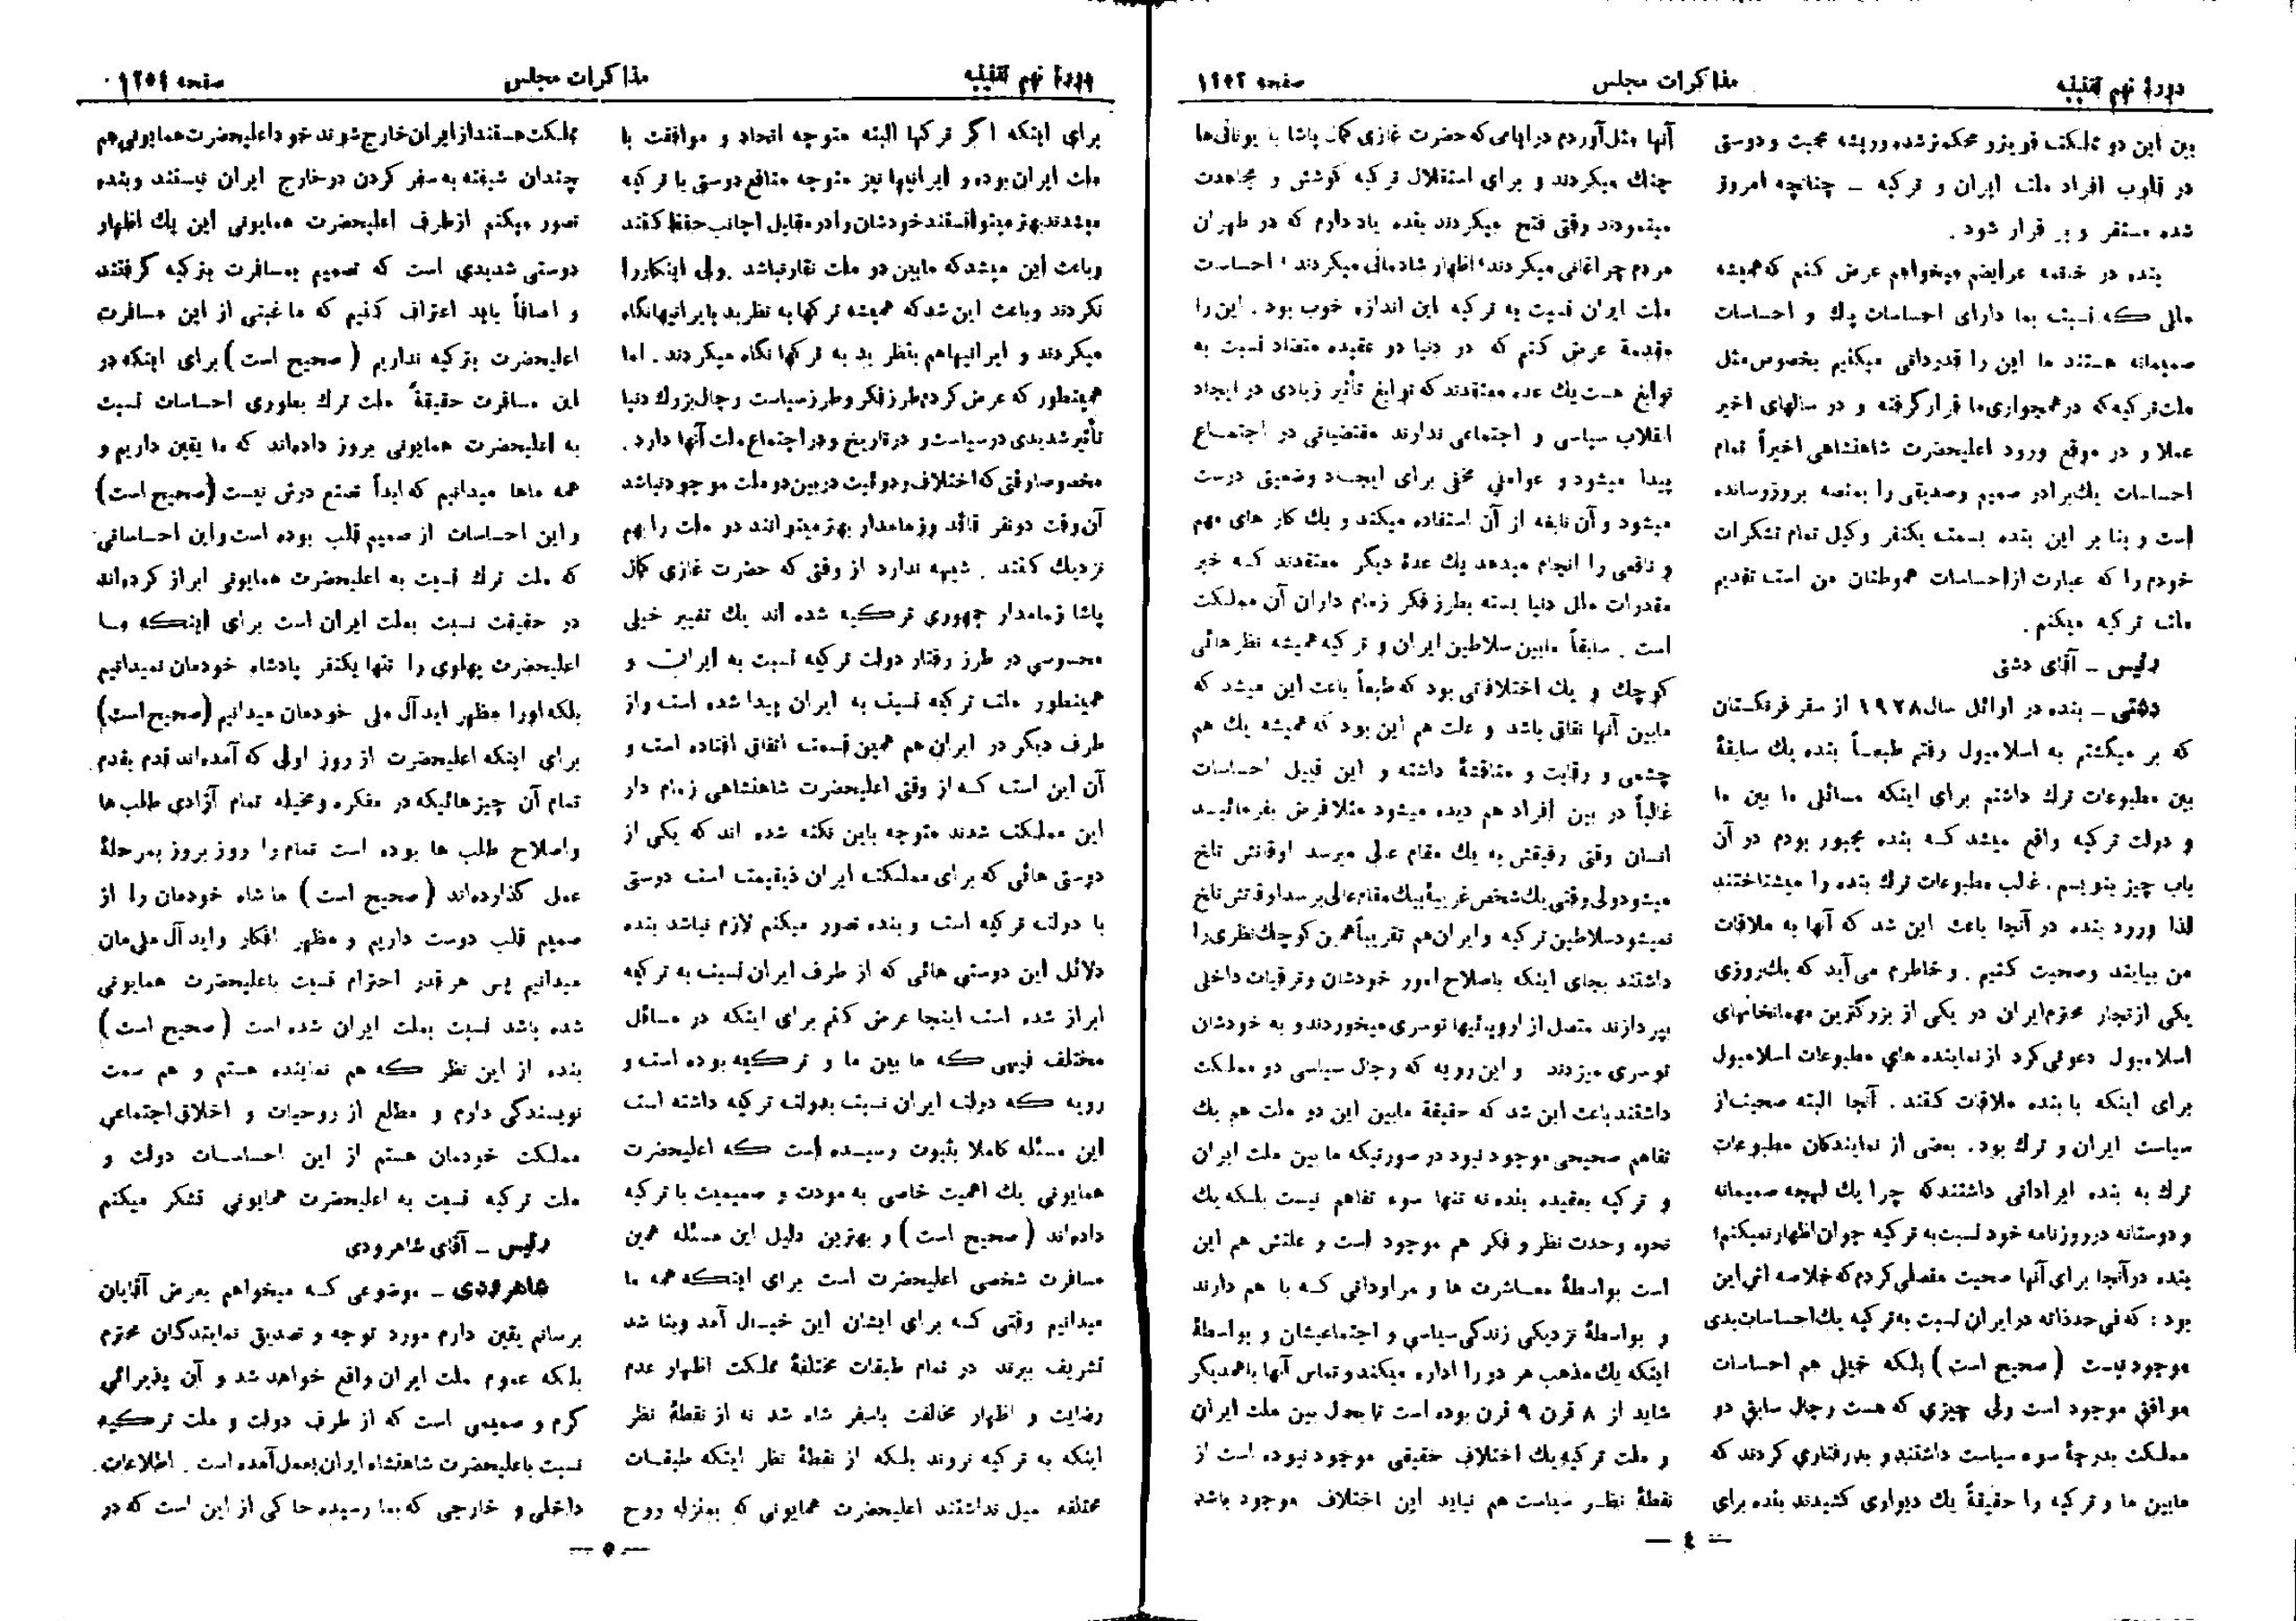 دورهٔ نهم تقنینیه
مذاکرات مجلس
صفحه ۱۲۵۳
بین این دو مملکت قویتر و محکم‌تر شده و ریشه محبت و دوستی
در قلوب افراد ملت ایران و ترکیه ـ چنانچه امروز
شده مستقر و بر قرار شود .
بنده در خاتمه عرایضم میخواهم عرض کنم که همیشه
مللی که نسبت بما دارای احساسات پاك و احساسات
صمیمانه هستند ما این را قدردانی میکنیم بخصوص مثل
ملت ترکیه که در همجواری ما قرار گرفته و در سالهای اخیر
عملا و در موقع ورود اعلیحضرت شاهنشاهی اخیراً تمام
احساسات یك برادر صمیم وصدیقی را بمنصه بروز رسانده
است و بنا بر این بنده بسمت یکنفر وکیل تمام تشکرات
خودم را که عبارت از احساسات هموطنان من است تقدیم
ملت ترکیه میکنم .
رئیس ـ آقای دشتی
دشتی ـ بنده در اوائل سال ۱۹۲۸ از سفر فرنگستان
که بر میگشتم به اسلامبول رفتم طبعـاً بنده یك سابقهٔ
بین مطبوعات ترك داشتم برای اینکه مسائلی ما بین ما
و دولت ترکیه واقع میشد کـه بنده مجبور بودم در آن
باب چیز بنویسم . غالب مطبوعات ترك بنده را میشناختند
لذا ورود بنده در آنجا باعث این شد که آنها به ملاقات
من بیایند وصحبت کنیم . و خاطرم می‌آید که یك روزی
یکی از تجار محترم ایران در یکی از بزرگترین مهمانخانهای
اسلامبول دعوتی کرد از نماینده های مطبوعات اسلامبول
برای اینکه با بنده ملاقات کنند . آنجا البته صحبت از
سیاست ایران و ترك بود . بعضی از نمایندگان مطبوعات
ترك به بنده ایراداتی داشتند که چرا یك لهجه صمیمانه
و دوستانه در روزنامه خود نسبت به ترکیه جوان اظهار نمیکنم؛
بنده در آنجا برای آنها صحبت مفصلی کردم که خلاصه اش این
بود : که فی حدذاته در ایران نسبت به ترکیه یك احساسات بدی
موجود نیست ( صحیح است ) بلکه خیلی هم احساسات
موافق موجود است ولی چیزی که هست رجال سابق دو
مملکت بدرجهٔ سوء سیاست داشتند و بد رفتاری کردند که
مابین ما و ترکیه را حقیقةً یك دیواری کشیدند بنده برای
آنها مثل آوردم در ایامی که حضرت غازی کمال پاشا با یونانی‌ها
جنك میکردند و برای استقلال ترکیه کوشش و مجاهدت
مینمودند وقتی فتح میکردند بنده یاد دارم که در طهران
مردم چراغانی میکردند، اظهار شادمانی میکردند ، احساسات
ملت ایران نسبت به ترکیه این اندازه خوب بود . این را
مقدمة عرض کنم که در دنیا دو عقیده متضاد نسبت به
نوابغ هست یك عده معتقدند که نوابغ تأثیر زیادی در ایجاد
انقلاب سیاسی و اجتماعی ندارند مقتضیاتی در اجتمـاع
پیدا میشود و عواملی مخفی برای ایجـاد وضعیتی درست
میشود و آن نابغه از آن استفاده میکند و یك کار های مهم
و ناقصی را انجام میدهد یك عدهٔ دیگر معتقدند کـه خیر
مقدرات ملل دنیا بسته بطرز فکر زمام داران آن مملکت
است . سابقاً مابین سلاطین ایران و ترکیه همیشه نظر هائی
کوچك و یك اختلافاتی بود که طبعاً باعث این میشد که
مابین آنها نفاق باشد و علت هم این بود که همیشه یك هم
چشمی و رقابت و مناقشهٔ داشته و این قبیل احساسات
غالباً در بین افراد هم دیده میشود مثلا فرض بفرمائیـد
انسان وقتی رفیقش به یك مقام عالی میرسد اوقاتش تلخ
میشود ولی وقتی یك شخص غریبهٔ بیك مقام عالی برسد اوقاتش تلخ
نمیشود سلاطین ترکیه و ایران هم تقریباً همین کوچك نظری را
داشتند بجای اینکه باصلاح امور خودشان و ترقیات داخلی
بپردازند متصل از اروپائیها توسری میخوردند و به خودشان
توسری میزدند و این رویه که رجال سیاسی دو مملکت
داشتند باعث این شد که حقیقة مابین این دو ملت هم یك
تفاهم صحیحی موجود نبود در صورتیکه ما بین ملت ایران
و ترکیه بعقیده بنده نه تنها سوء تفاهم نیست بلکه یك
نحوه وحدت نظر و فکر هم موجود است و علتش هم این
است بواسطهٔ معـاشرت ها و مراوداتی کـه با هم دارند
و بواسطهٔ نزدیکی زندگی سیاسی و اجتماعیشان و بواسطهٔ
اینکه یك مذهب هر دو را اداره میکند و تماس آنها با همدیگر
شاید از ۸ قرن ۹ قرن بوده است تا بحال بین ملت ایران
و ملت ترکیه یك اختلاف حقیقی موجود نبوده است از
نقطهٔ نظـر سیاست هم نباید این اختلاف موجود باشد
ـ ٤ ـ
دورهٔ نهم تقنینیه
مذاکرات مجلس
صفحه ۱۲۵٤
برای اینکه اگر ترکها البته متوجه اتحاد و موافقت با
ملت ایران بوده و ایرانیها نیز متوجه منافع دوستی با ترکیه
میشدند بهتر میتوانستند خودشان را در مقابل اجانب حفظ کنند
و باعث این میشد که مابین دو ملت نقار نباشد . ولی اینکار را
نکردند و باعث این شد که همیشه ترکها به نظر بد بایرانیها نگاه
میکردند و ایرانیهاهم بنظر بد به ترکها نگاه میکردند . اما
همینطور که عرض کردم طرز فکر و طرز سیاست رجال بزرك دنیا
تأثیر شدیدی در سیاست و در تاریخ و در اجتماع ملت آنها دارد .
مخصوصا وقتی که اختلاف و دوئیت در بین دو ملت موجود نباشد
آن وقت دو نفر قائد و زمامدار بهتر میتوانند دو ملت را بهم
نزدیك کنند . شبهه ندارد از وقتی که حضرت غازی کمال
پاشا زمامدار جمهوری ترکیه شده اند یك تغییر خیلی
محسوسی در طرز رفتار دولت ترکیه نسبت به ایران و
همینطور ملت ترکیه نسبت به ایران پیدا شده است و از
طرف دیگر در ایران هم همین قسمت اتفاق افتاده است و
آن این است کـه از وقتی اعلیحضرت شاهنشاهی زمام دار
این مملکت شدند متوجه باین نکته شده اند که یکی از
دوستی هائی که برای مملکت ایران ذیقیمت است دوستی
با دولت ترکیه است و بنده تصور میکنم لازم نباشد بنده
دلائل این دوستی هائی که از طرف ایران نسبت به ترکیه
ابراز شده است اینجا عرض کنم برای اینکه در مسائل
مختلف فیهی که ما بین ما و ترکیه بوده است و
رویه که دولت ایران نسبت بدولت ترکیه داشته است
این مسئله کاملا بثبوت رسیده است که اعلیحضرت
همایونی یك اهمیت خاصی به مودت و صمیمیت با ترکیه
داده‌اند ( صحیح است ) و بهترین دلیل این مسئله همین
مسافرت شخصی اعلیحضرت است برای اینکه همه ما
میدانیم وقتی کـه برای ایشان این خیـال آمد وبنا شد
تشریف ببرند در تمام طبقات مختلفهٔ مملکت اظهار عدم
رضایت و اظهار مخالفت باسفر شاه شد نه از نقطهٔ نظر
اینکه به ترکیه نروند بلکه از نقطهٔ نظر اینکه طبقـات
مختلفه میل نداشتند اعلیحضرت همایونی که بمنزله روح
مملکت هستند از ایران خارج شوند خود اعلیحضرت همایونی هم
چندان شیفته به سفر کردن در خارج ایران نیستند و بنده
تصور میکنم از طرف اعلیحضرت همایونی این یك اظهار
دوستی شدیدی است که تصمیم بمسافرت بترکیه گرفتند
و انصافاً باید اعتراف کنیم که ما غبنی از این مسافرت
اعلیحضرت بترکیه نداریم ( صحیح است ) برای اینکه در
این مسافرت حقیقةً ملت ترك بطوری احساسات نسبت
به اعلیحضرت همایونی بروز داده‌اند که ما یقین داریم و
همه ماها میدانیم که ابداً تصنع درش نیست (صحیح است)
و این احساسات از صمیم قلب بوده است و این احساساتی
که ملت ترك نسبت به اعلیحضرت همایونی ابراز کرده‌اند
در حقیقت نسبت بملت ایران است برای اینکه مـا
اعلیحضرت پهلوی را تنها یکنفر پادشاه خودمان نمیدانیم
بلکه او را مظهر ایدآل ملی خودمان میدانیم (صحیح است)
برای اینکه اعلیحضرت از روز اولی که آمده‌اند قدم بقدم
تمام آن چیز هائیکه در مفکره و مخیله تمام آزادی طلب ها
واصلاح طلب ها بوده است تمام را روز بروز بمرحلهٔ
عمل گذارده‌اند ( صحیح است ) ما شاه خودمان را از
صمیم قلب دوست داریم و مظهر افکار و ایدآل ملی‌مان
میدانیم پس هر قدر احترام نسبت باعلیحضرت همایونی
شده باشد نسبت بملت ایران شده است ( صحیح است )
بنده از این نظر که هم نماینده هستم و هم سمت
نویسندگی دارم و مطلع از روحیات و اخلاق اجتماعی
مملکت خودمان هستم از این احساسات دولت و
ملت ترکیه نسبت به اعلیحضرت همایونی تشکر میکنم
رئیس ـ آقای شاهرودی
شاهرودی ـ موضوعی کـه میخواهم بعرض آقایان
برسانم یقین دارم مورد توجه و تصدیق نمایندگان محترم
بلکه عموم ملت ایران واقع خواهد شد و آن پذیرائی
گرم و صمیمی است که از طرف دولت و ملت ترکیه
نسبت باعلیحضرت شاهنشاه ایران بعمل آمده است . اطلاعات
داخلی و خارجی که بما رسیده حاکی از این است که در
ـ ٥ ـ